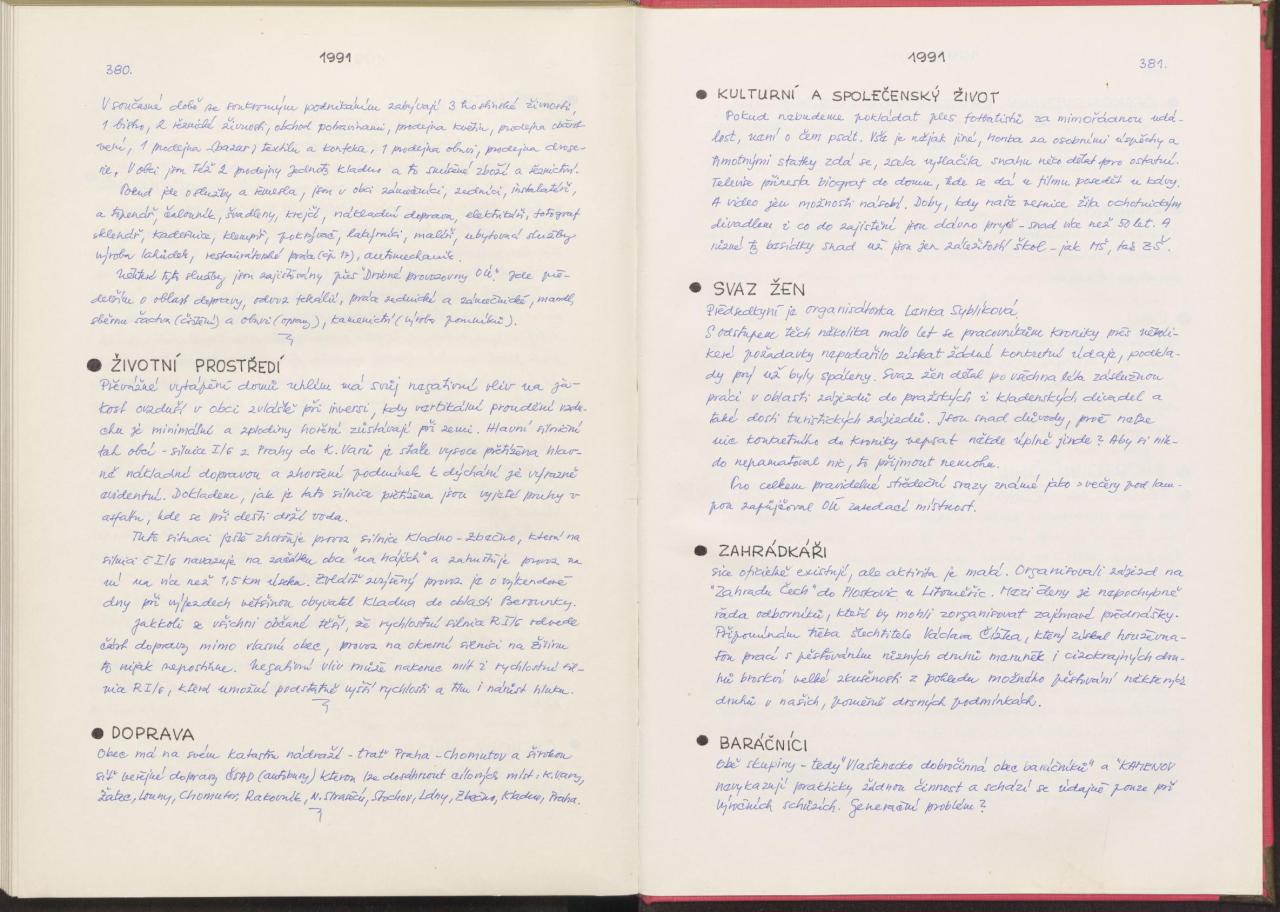 380.
1991
V současné době se soukromým podnikáním zabývají 3 hostinské živnosti,
1 bistro, 2 řeznické živnosti, obchod potravinami, prodejna květin, prodejna občerst-
vení, 1 prodejna (bazar) textilu a konfekce, 1 prodejna obuvi, prodejna droge-
rie. V obci jsou též 2 prodejny Jednoty Kladno a to smíšené zboží a řeznictví.
Pokud jde o služby a řemesla, jsou v obci zámečníci, zedníci, instalatéři,
a topenář, čalouník, švadleny, krejčí, nákladní doprava, elektrikáři, fotograf
sklenář, kadeřnice, klempíř, pokrývač, lakýrníci, malíři, ubytovací služby
výroba lahůdek, restaurátorské práce (čp. 17), automechanik.
Některé tyto služby jsou zajišťovány přes "Drobné provozovny OÚ". Jde pře-
devším o oblast dopravy, odvoz fekálií, práce zednické a zámečnické, mandl,
sběrnu šatstva (čištění) a obuvi (opravy), kamenictví (výroba pomníků).
● ŽIVOTNÍ PROSTŘEDÍ
Převážné vytápění domů uhlím má svůj negativní vliv na ja-
kost ovzduší v obci zvláště při inversi, kdy vertikální proudění vzdu-
chu je minimální a zplodiny hoření zůstávají při zemi. Hlavní silniční
tah obcí - silnice I/6 z Prahy do K. Varů je stále vysoce přetížena hlav-
ně nákladní dopravou a zhoršení podmínek k dýchání je výrazně
evidentní. Dokladem, jak je tato silnice přetížena jsou vyjeté pruhy v
asfaltu, kde se při dešti drží voda.
Tuto situaci ještě zhoršuje provoz silnice Kladno - Zbečno, která na
silnici č I/6 navazuje na začátku obce "na hájích" a zahušťuje provoz na
ní na více než 1,5 km úseku. Zvlášť zvýšený provoz je o víkendové
dny při výjezdech většinou obyvatel Kladna do oblasti Berounky.
Jakkoli se všichni občané těší, že rychlostní silnice R I/6 odvede
část dopravy mimo vlastní obec, provoz na okresní silnici na Žilinu
to nijak nepostihne. Negativní vliv může nakonec mít i rychlostní sil-
nice R I/6, která umožní podstatně vyšší rychlosti a tím i nárůst hluku.
● DOPRAVA
Obec má na svém katastru nádraží - trať Praha - Chomutov a širokou
síť veřejné dopravy ČSAD (autobusy) kterou lze dosáhnout cílových míst: K. Vary,
Žatec, Louny, Chomutov, Rakovník, N. Strašecí, Stochov, Lány, Zbečno, Kladno, Praha.
1991
381.
● KULTURNÍ A SPOLEČENSKÝ ŽIVOT
Pokud nebudeme pokládat ples fotbalistů za mimořádnou udá-
lost, není o čem psát. Vše je nějak jiné, honba za osobními úspěchy a
hmotnými statky zdá se, zcela vytlačila snahu něco dělat pro ostatní.
Televise přinesla biograf do domu, kde se dá u filmu posedět u kávy.
A video jen možnosti násobí. Doby, kdy naše vesnice žila ochotnickým
divadlem i co do zajištění jsou dávno pryč - snad více než 50 let. A
různé ty besídky snad už jsou jen záležitostí škol - jak MŠ, tak ZŠ.
● SVAZ ŽEN
Předsedkyní je organisátorka Lenka Syblíková.
S odstupem těch několika málo let se pracovníkům kroniky přes několi-
keré požadavky nepodařilo získat žádné konkrétní údaje, podkla-
dy prý už byly spáleny. Svaz žen dělal po všechna léta záslužnou
práci v oblasti zájezdů do pražských i kladenských divadel a
také dosti turistických zájezdů. Jsou snad důvody, proč nelze
nic konkrétního do kroniky vepsat někde úplně jinde? Aby si nik-
do nepamatoval nic, to přijmout nemohu.
Pro celkem pravidelné středeční srazy známé jako "večery pod lam-
pou zapůjčoval OÚ zasedací místnost.
● ZAHRÁDKÁŘI
Sice oficielně existují, ale aktivita je malá. Organisovali zájezd na
"Zahradu Čech" do Ploskovic u Litoměřic. Mezi členy je nepochybně
řada odborníků, kteří by mohli zorganisovat zajímavé přednášky.
Připomínám třeba šlechtitele Václava Čížka, který získal houževna-
tou prací s pěstováním různých druhů meruněk i cizokrajných dru-
hů broskví velké zkušenosti z pohledu možného pěstování některých
druhů v našich, poměrně drsných podmínkách.
● BARÁČNÍCI
Obě skupiny - tedy "Vlastenecko dobročinná obec baráčníků" a "KAMENOV
nevykazují prakticky žádnou činnost a schází se údajně pouze při
výročních schůzích. Generační problém?